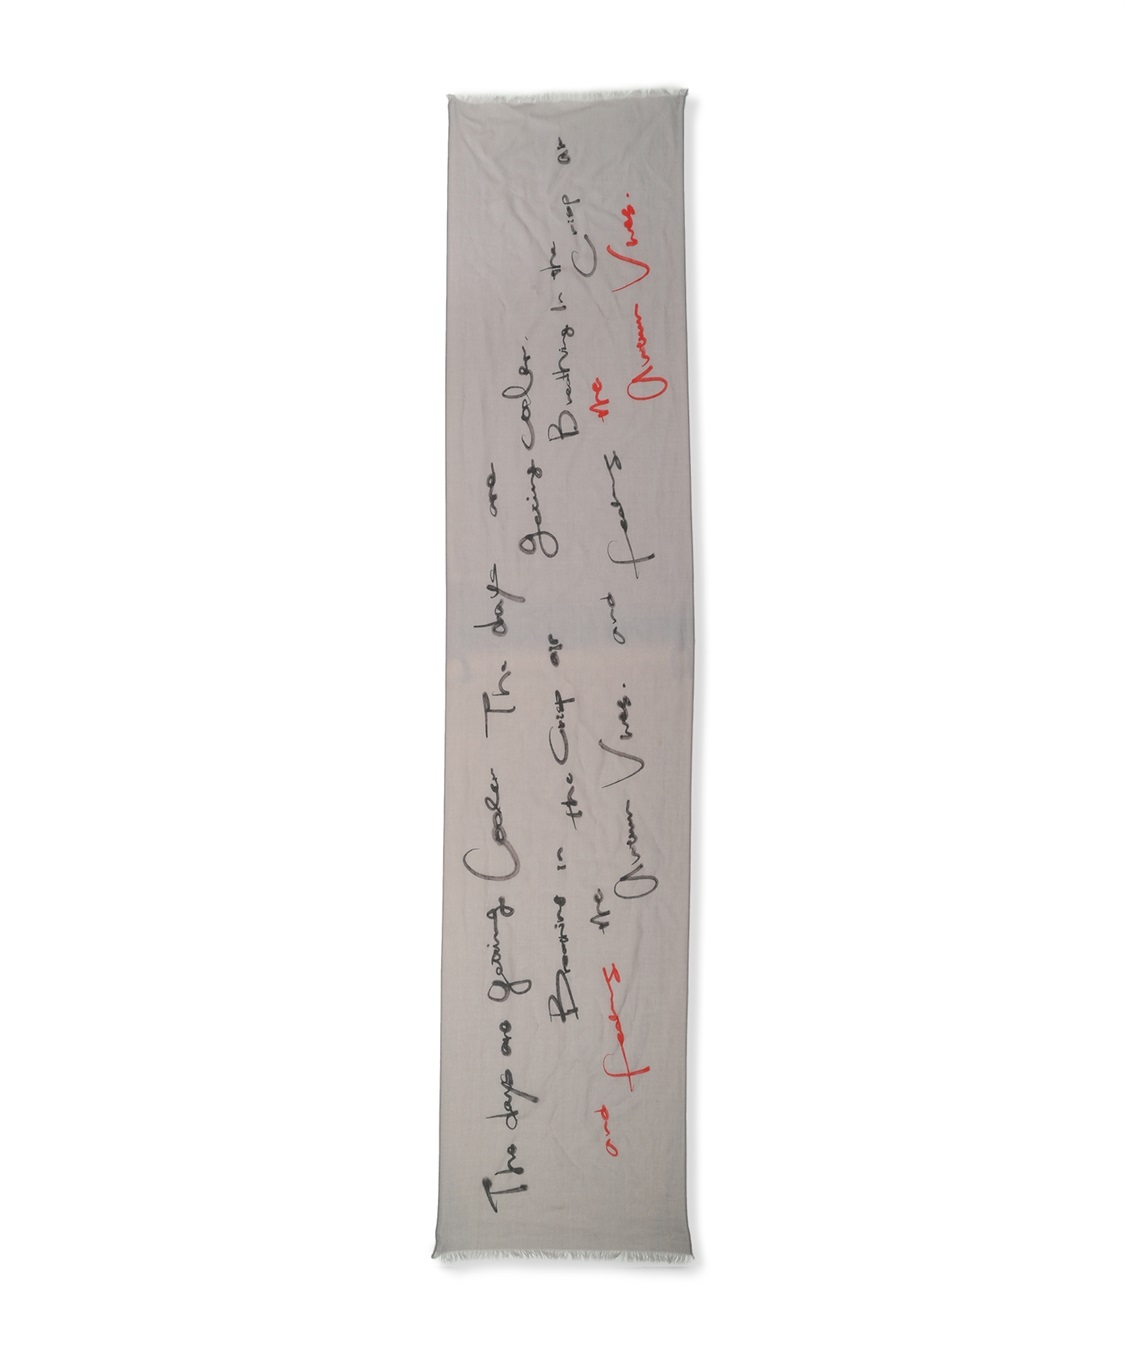 The days are getting Cooler The days are
getting cooler.
Breathing in the Crisp air Breathing In the Crisp air
and feeling the Autumn Vibes. and feeling the Autumn Vibes.